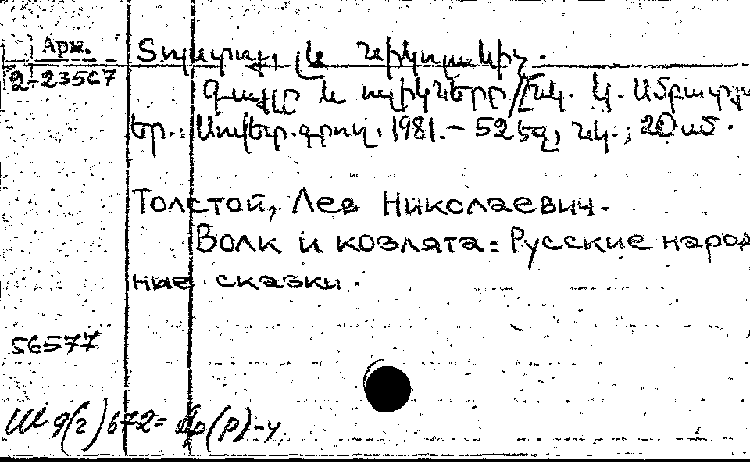 Арм.
2-23567
Տոլստոյ, Լև Նիկոլաևիչ.
Գայլը և ուլիկները/[Նկ. Կ.
Եր.: Սովետ. գրող, 1981.- 52 էջ, նկ.; 20 սմ.
Толстой, Лев Николаевич.
Волк и козлята: Русские народ
ные сказки.
56577